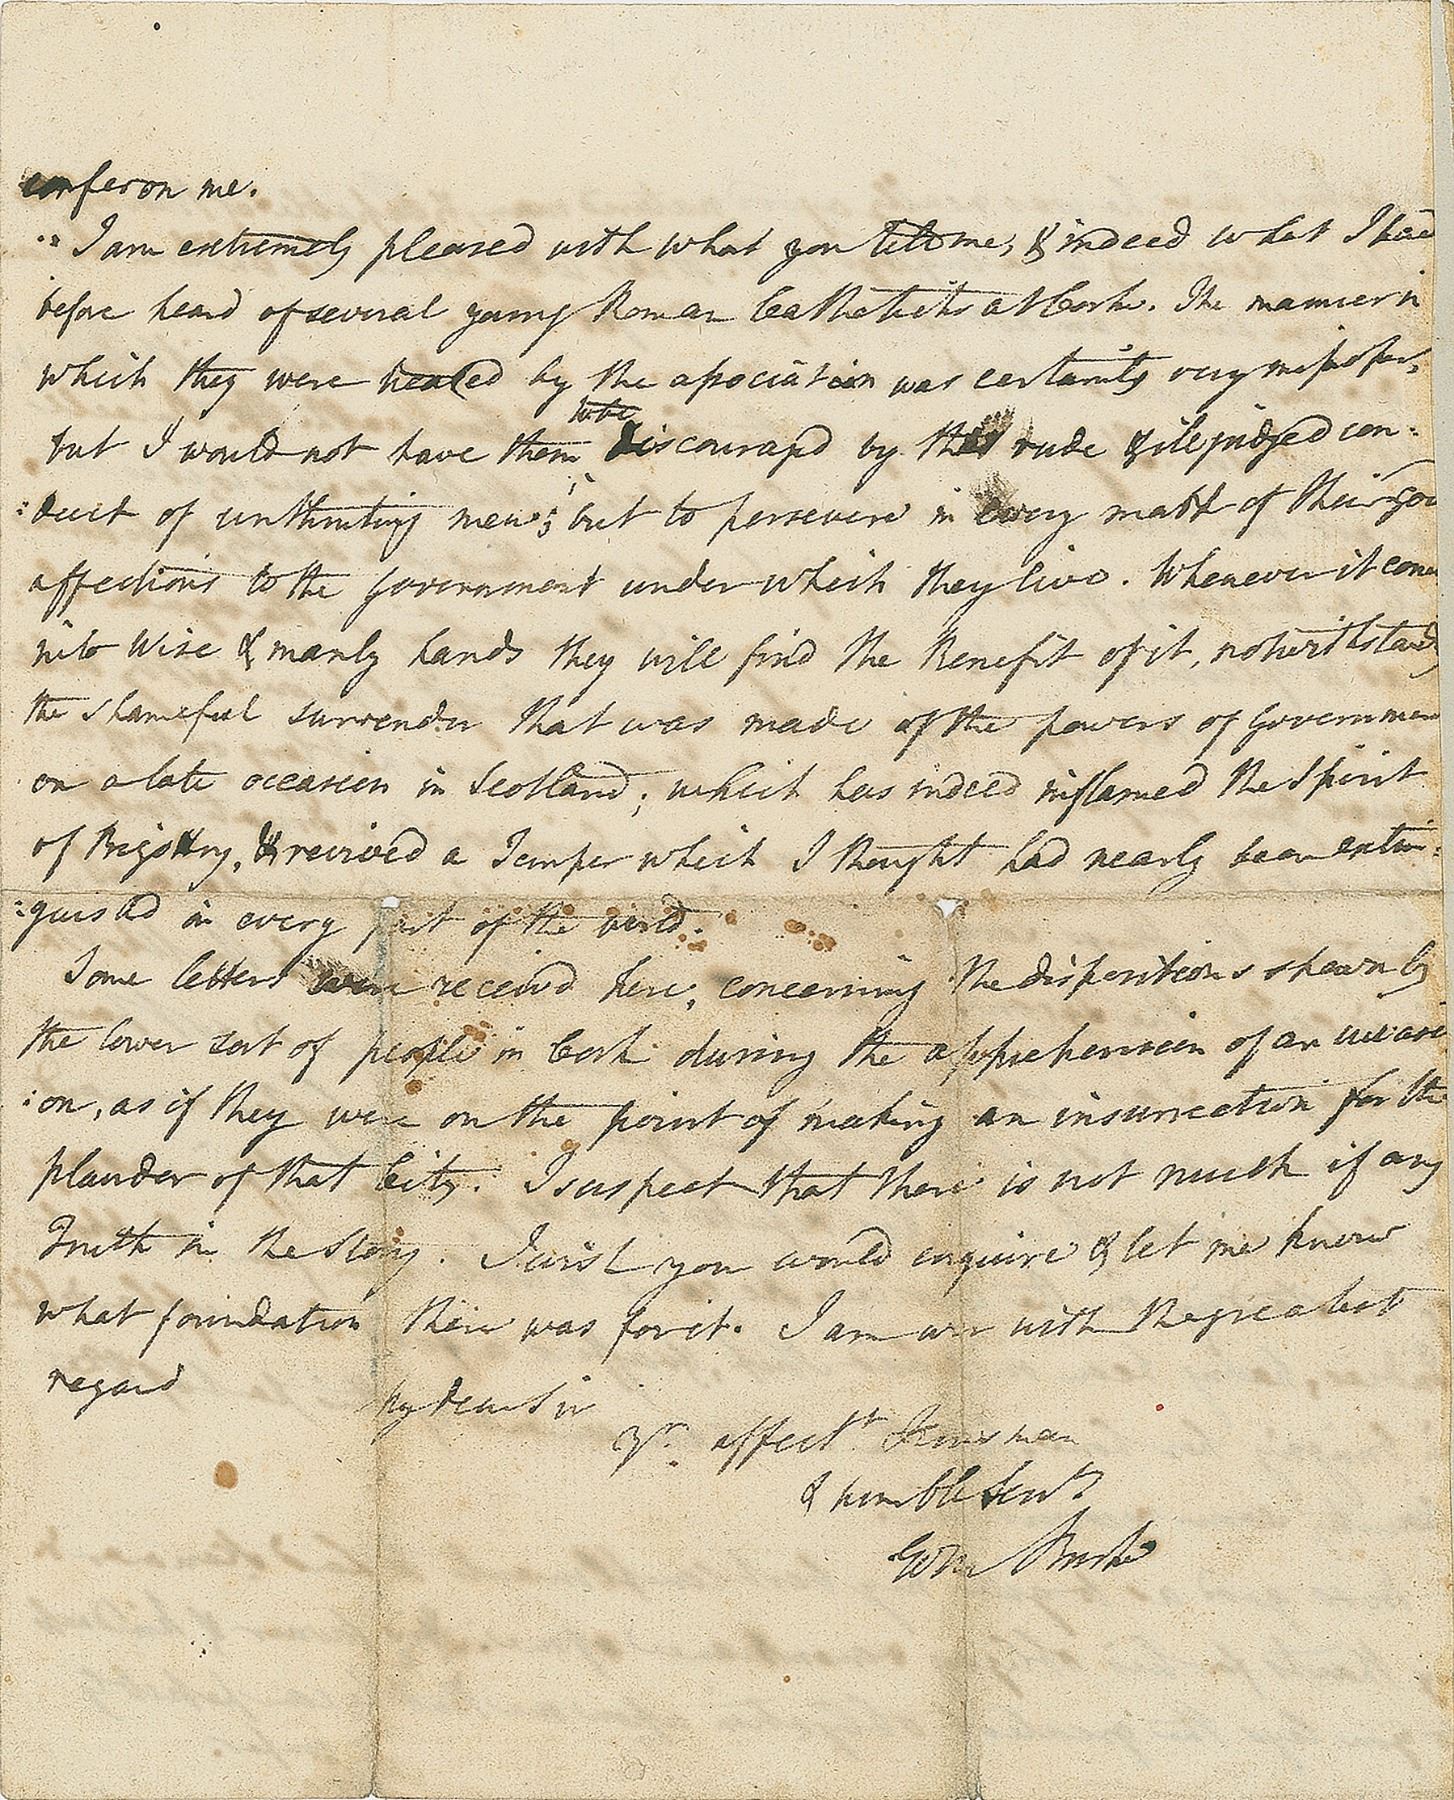 confer on me.
I am extremely pleased with what you tell me, & indeed what I had
before heard of several young Roman Catholicks at Cork. The manner in
which they were treated by the association was certainly very improper,
but I would not have them to be discouraged by the rude & ill judged con-
:duct of unthinking men; but to persevere in every mark of their good
affections to the Government under which they live. Whenever it comes
into Wise & manly hands they will find the Benefit of it, notwithstanding
the shameful surrender that was made of the powers of Government
on a late occasion in Scotland; which has indeed inflamed the Spirit
of Bigotry, & revived a Temper which I thought had nearly been extin:
:guished in every part of the world.
Some letters were received here, concerning the dispositions shewn by
the lower sort of people in Cork during the apprehension of an invasi
:on, as if they were on the point of making an insurrection for the
plunder of that City. I suspect that there is not much if any
Truth in the Story. I wish you would enquire & let me know
what foundation there was for it. I am with the greatest
regard
My dear Sir
Yr. affectt Kinsman
& humble Servt
Edm Burke